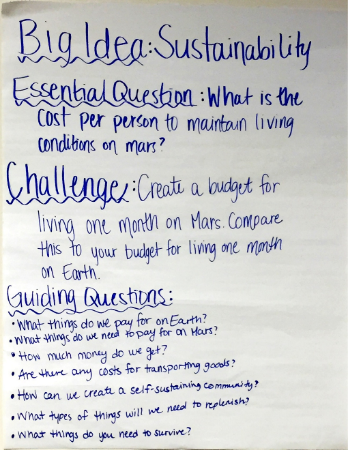 Big Idea: Sustainability
Essential Question: What is the
cost per person to maintain living
conditions on mars?
Challenge: Create a budget for
living one month on Mars. Compare
this to your budget for living one month
on Earth.
Guiding Questions:
• What things do we pay for on Earth?
• What things do we need to pay for on Mars?
• How much money do we get?
• Are there any costs for transporting goods?
• How can we create a self-sustaining community?
• What types of things will we need to replenish?
• What things do you need to survive?